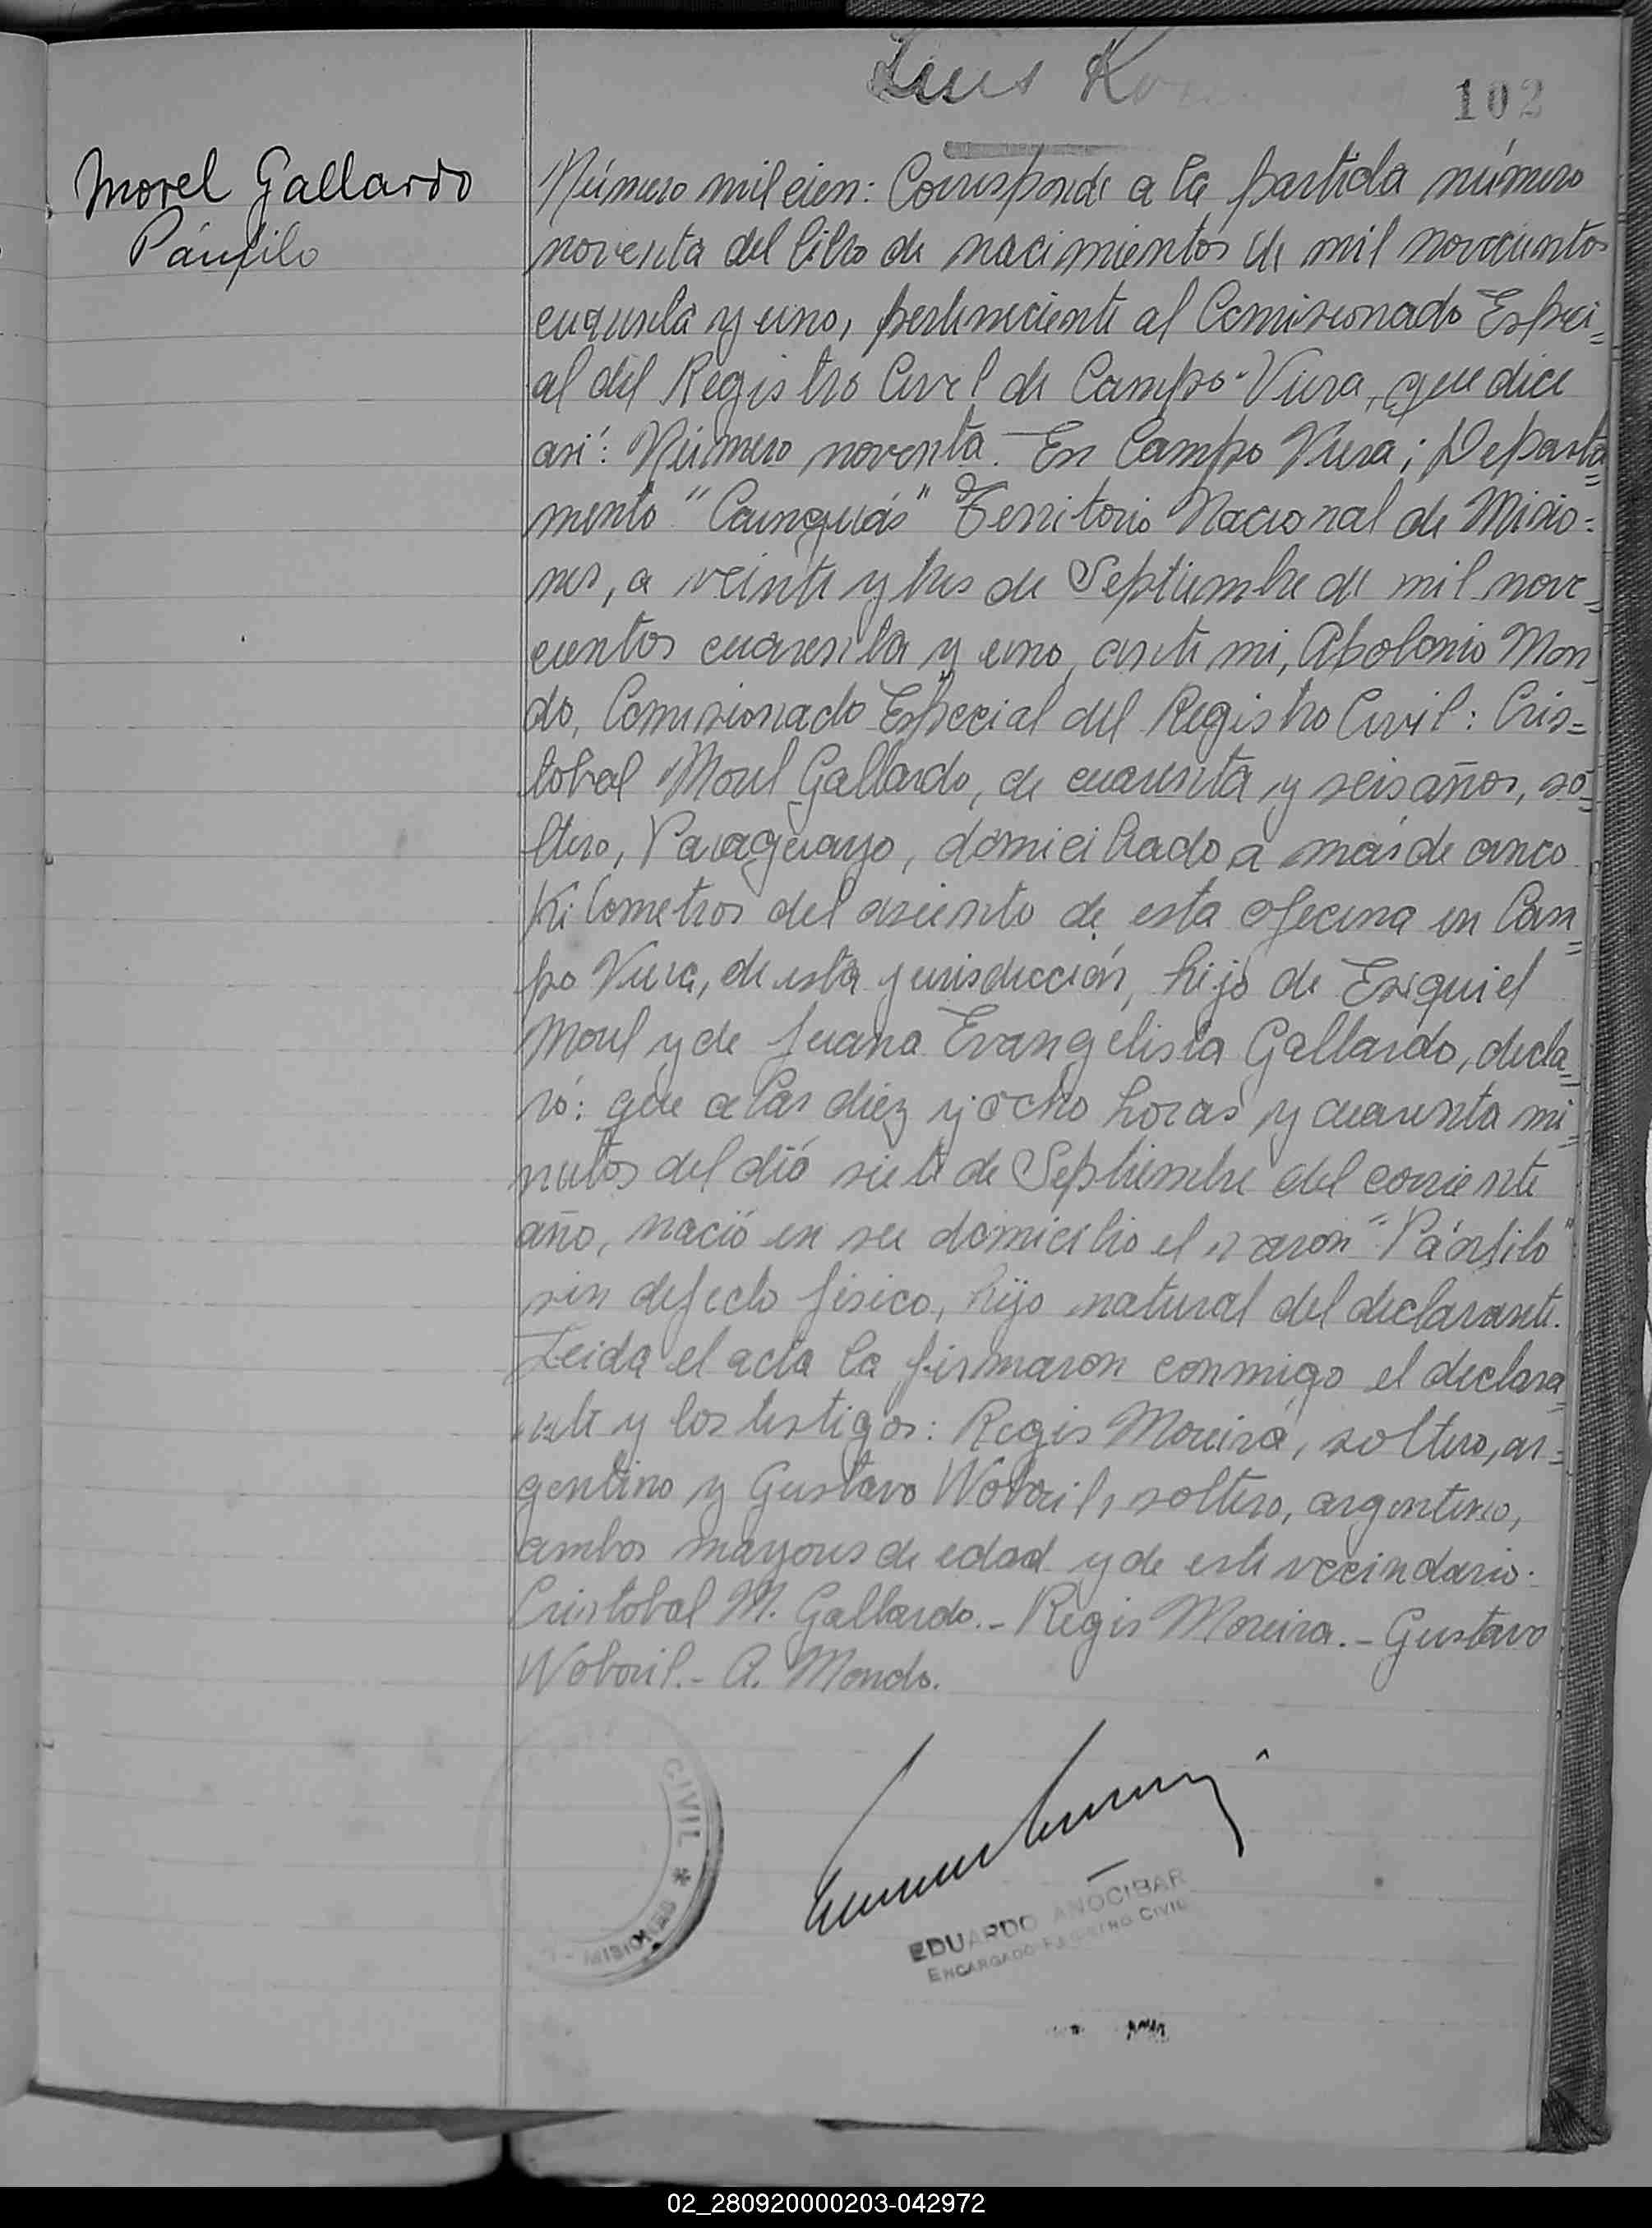 Luis
102
Morel Gallardo
Pánfilo
Número mil cien: Corresponde a la partida número
noventa del libro de nacimientos de mil novecientos
cuarenta y uno, perteneciente al Comisionado Especi=
al del Registro Civil de Campo-Viera, que dice
asi: Número noventa. En Campo Viera; Departa=
mento "Cainguás" Territorio Nacional de Misio=
nes, a veinte y tres de Septiembre de mil nove=
cientos cuarenta y uno, ante mi, Apolonio Mon=
do, Comisionado Especial del Registro Civil: Cris=
tobal Morel Gallardo, de cuarenta y seis años, so=
ltero, Paraguayo, domiciliado a más de cinco
Kilometros del asiento de esta oficina en Cam=
po Viera, de esta jurisdicción, hijo de Exequiel
Morel y de Juana Evangelista Gallardo, decla=
ró: que a las diez y ocho horas y cuarenta mi=
nutos del dió siete de Septiembre del corriente
año, nació en su domicilio el varon "Pánfilo"
sin defecto físico, hijo natural del declarante.
Leida el acta la firmaron conmigo el declara=
nte y los testigos: Regis Moreira, soltero, ar=
gentino y Gustavo Woboril, soltero, argentino,
ambos mayores de edad y de este vecindario.
Cristobal M. Gallardo.- Regis Moreira.- Gustavo
Woboril.- A. Mondo.
CIVIL * MISIONES
EDUARDO ANOCIBAR
ENCARGADO REGISTRO CIVIL
02_280920000203-042972